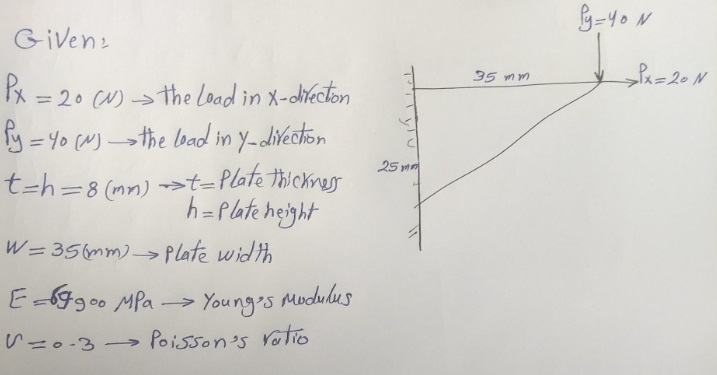 Given:
Px = 20 (N) → the load in x-direction
Py = 40 (N) → the load in y-direction
t = h = 8 (mm) → t = Plate thickness
h = Plate height
W = 35 (mm) → Plate width
E = 69900 MPa → Young's Modulus
ν = 0.3 → Poisson's ratio
Py = 40 N
35 mm
Px = 20 N
25 mm